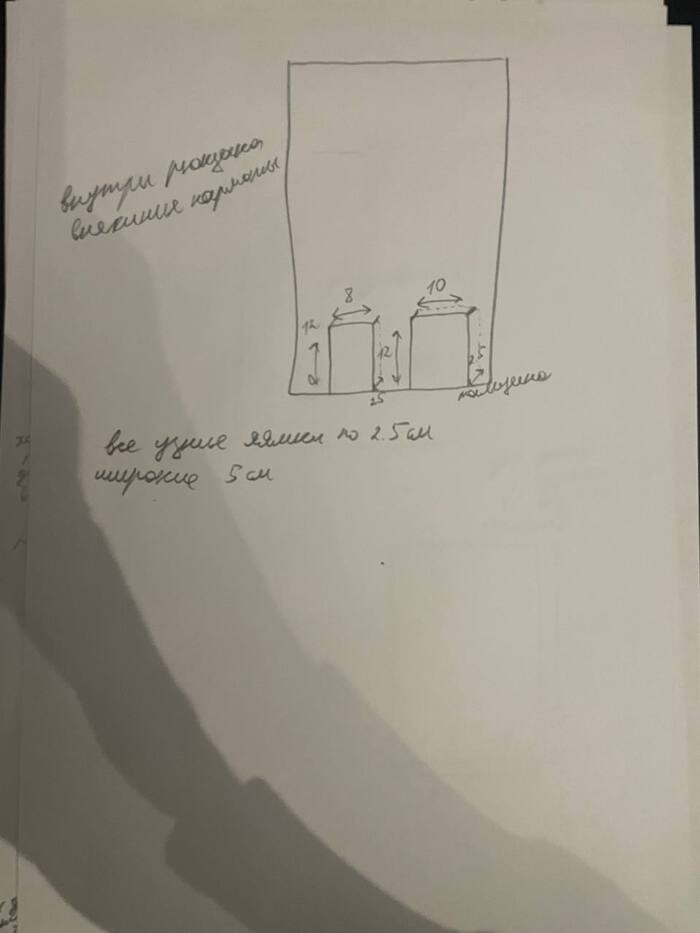 внутри рюкзака
внешние карманы
8
10
12
12
25
25
толщина
все узкие лямки по 2.5 см
широкие 5 см